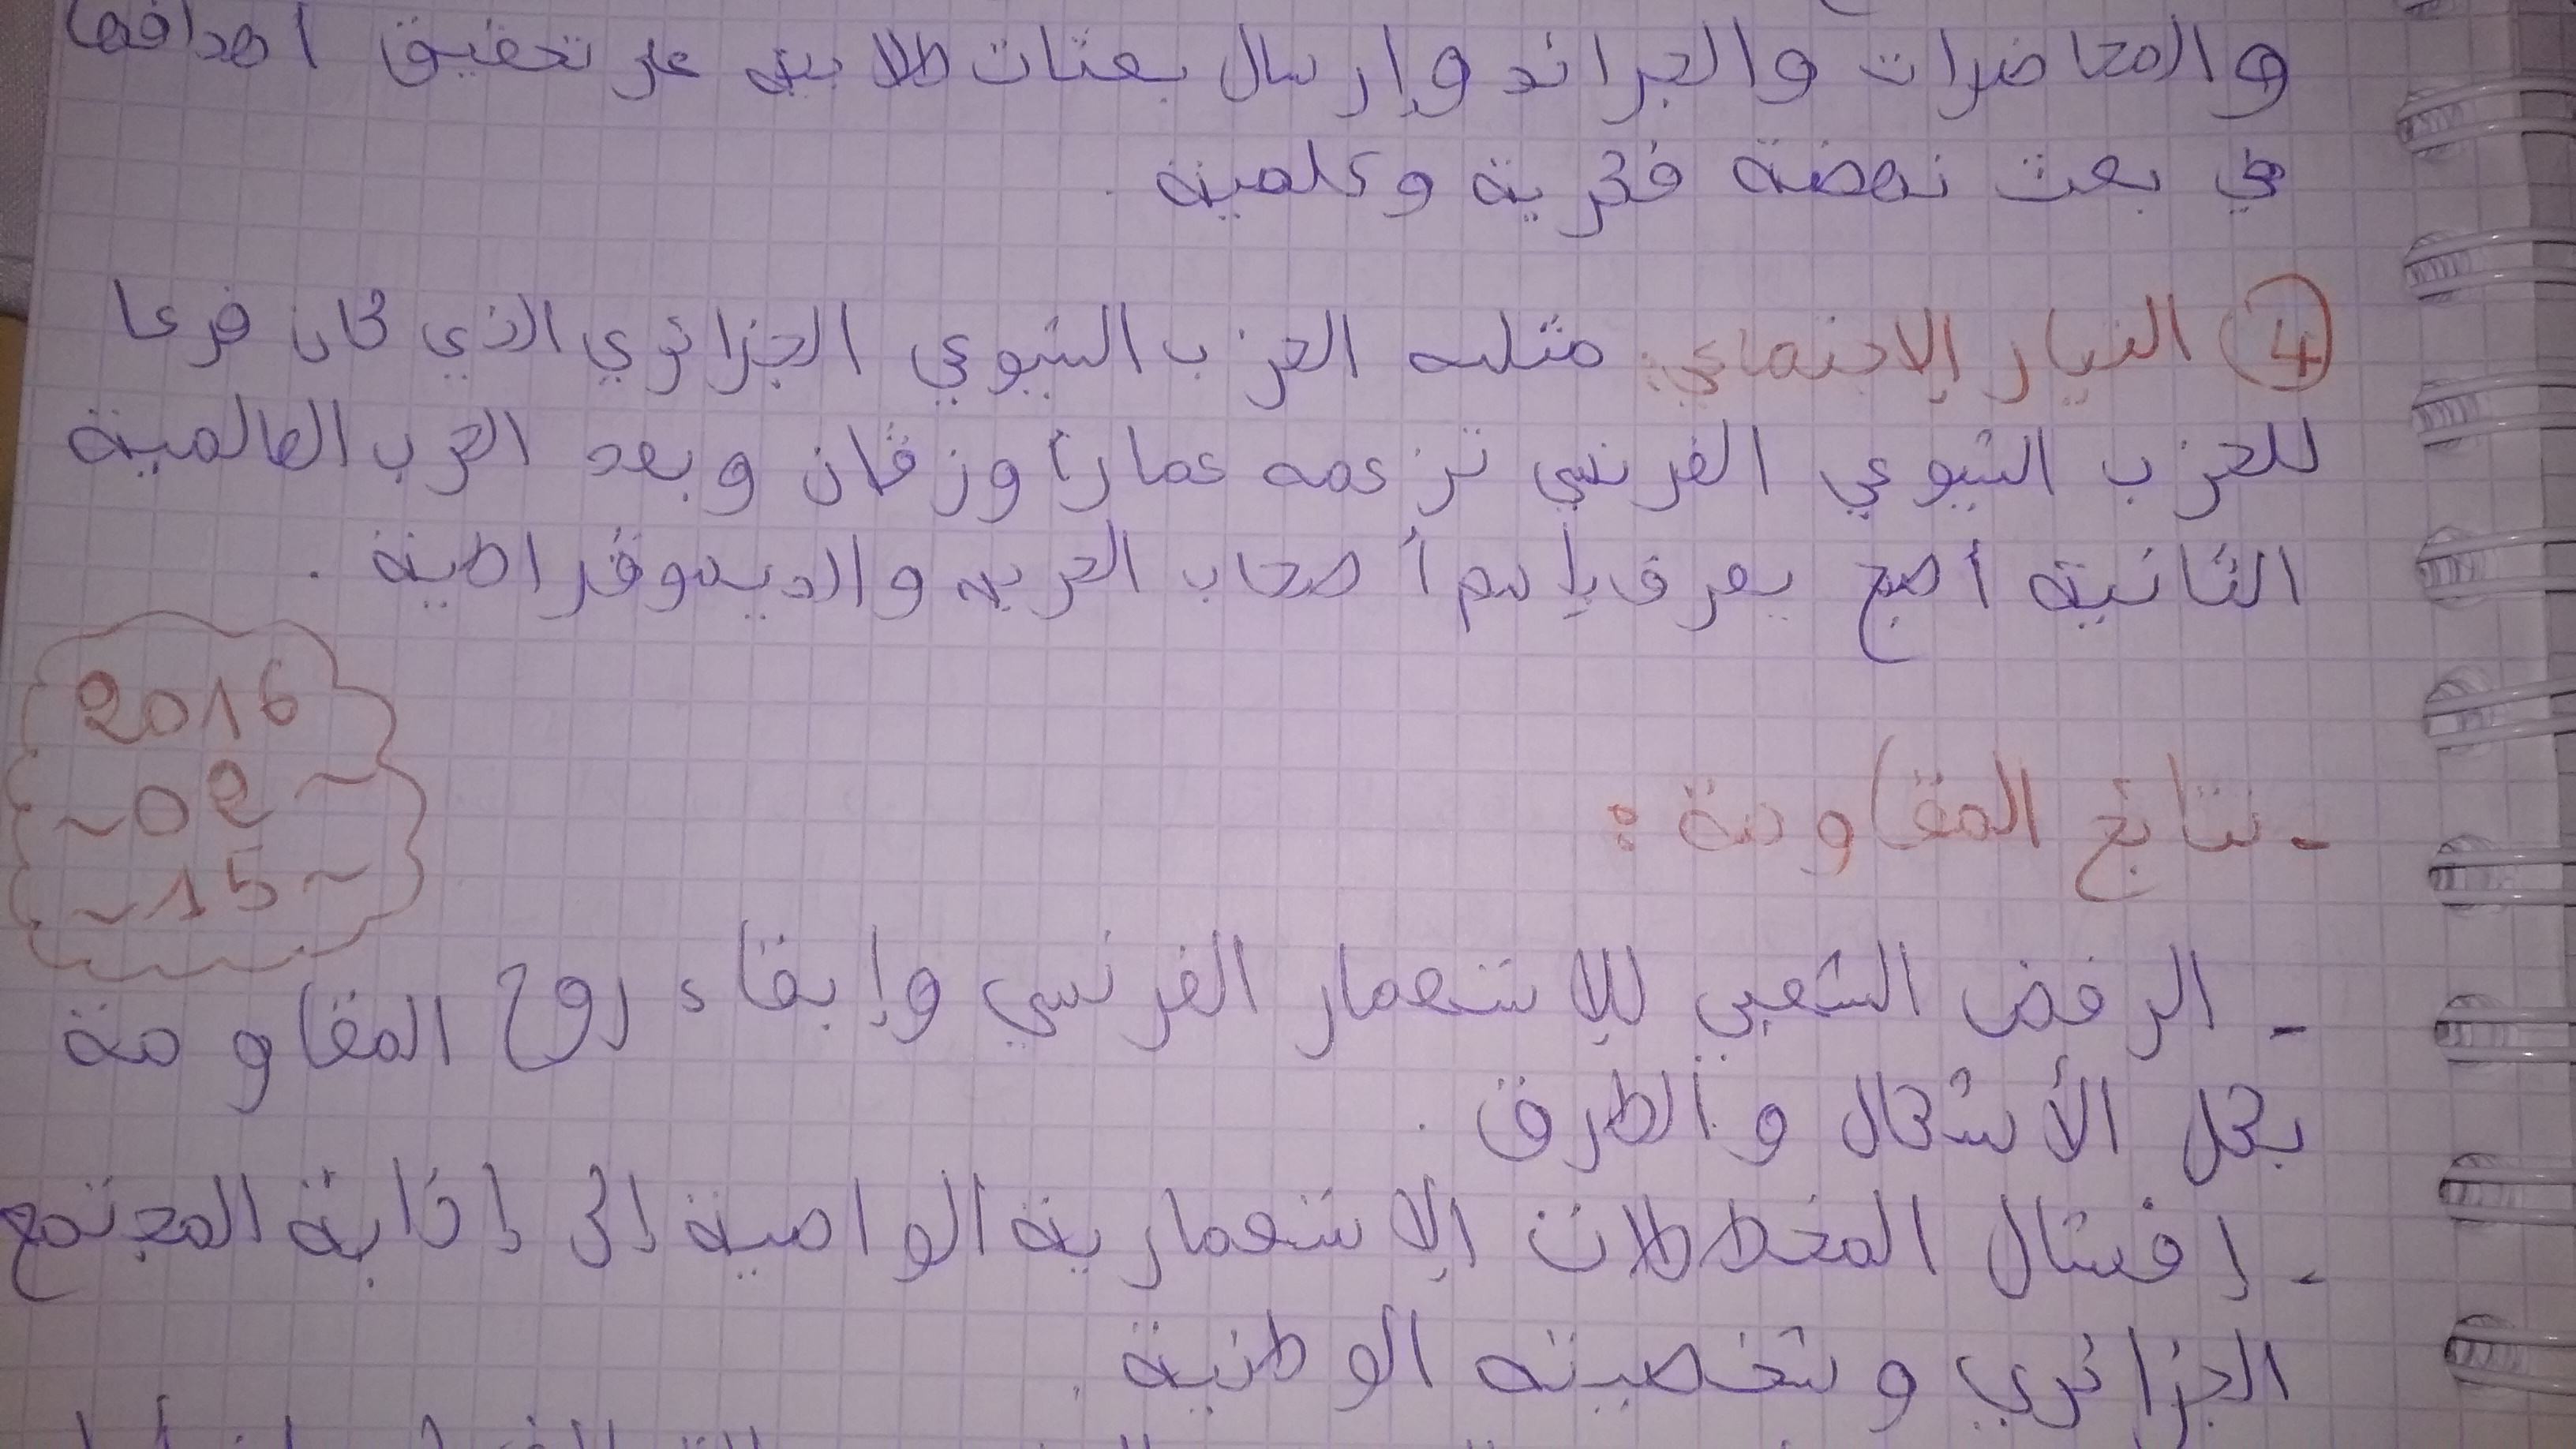 والمحاضرات والجرائد وإرسال بعثات طلابية على تحقيق اهدافها
في بعث نهضة فكرية وعلمية .
④ التيار الإجتماعي: مثله الحزب الشيوعي الجزائري الذي كان فرعا
للحزب الشيوعي الفرنسي تزعمه عمار أوزقان وبعد الحرب العالمية
الثانية أصبح يعرف بإسم أصحاب الحرية والديموقراطية .
2016
~ 02 ~
~ 15 ~
- نتائج المقاومة :
- الرفض الشعبي للإستعمار الفرنسي وإبقاء روح المقاومة
بكل الأشكال والطرق .
- إفشال المخططات الإستعمارية الرامية إلى إذابة المجتمع
الجزائري وشخصيته الوطنية .